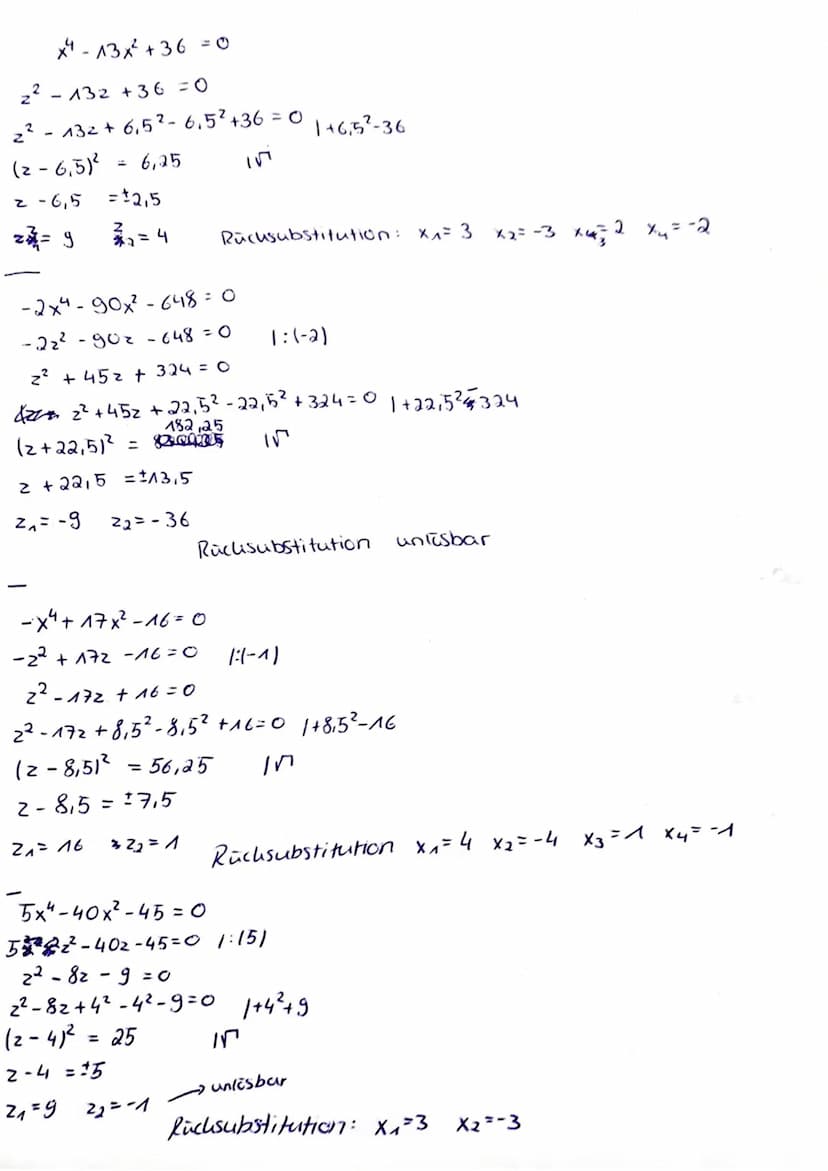 x⁴ - 13x² + 36 = 0
z² - 13z + 36 = 0
z² - 13z + 6,5² - 6,5² + 36 = 0 | + 6,5² - 36
(z - 6,5)² = 6,25 | √
z - 6,5 = ± 2,5
z₁ = 9 z₂ = 4 Rücksubstitution: x₁ = 3 x₂ = -3 x₃ = 2 x₄ = -2
-2x⁴ - 90x² - 648 = 0
-2z² - 90z - 648 = 0 | : (-2)
z² + 45z + 324 = 0
z² + 45z + 22,5² - 22,5² + 324 = 0 | + 22,5² - 324
(z + 22,5)² = 182,25 | √
z + 22,5 = ± 13,5
z₁ = -9 z₂ = -36
Rücksubstitution unlösbar
-x⁴ + 17x² - 16 = 0
-z² + 17z - 16 = 0 | : (-1)
z² - 17z + 16 = 0
z² - 17z + 8,5² - 8,5² + 16 = 0 | + 8,5² - 16
(z - 8,5)² = 56,25 | √
z - 8,5 = ± 7,5
z₁ = 16 z₂ = 1 Rücksubstitution x₁ = 4 x₂ = -4 x₃ = 1 x₄ = -1
5x⁴ - 40x² - 45 = 0
5z² - 40z - 45 = 0 | : (5)
z² - 8z - 9 = 0
z² - 8z + 4² - 4² - 9 = 0 | + 4² + 9
(z - 4)² = 25 | √
z - 4 = ± 5
z₁ = 9 z₂ = -1 → unlösbar
Rücksubstitution: x₁ = 3 x₂ = -3